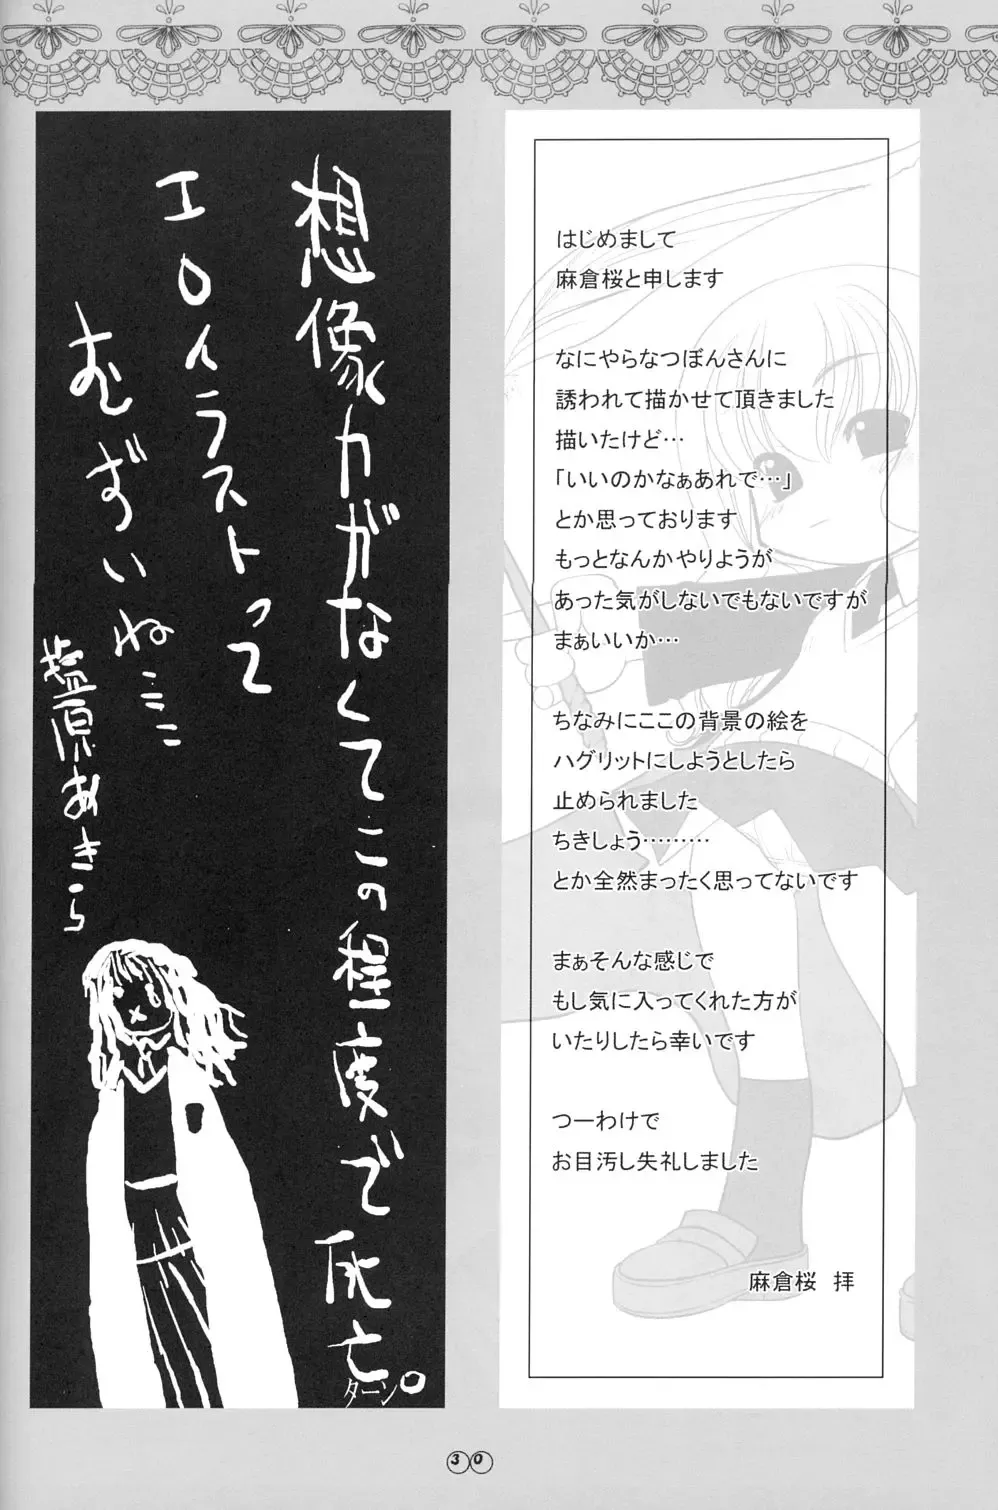 はじめまして
麻倉桜と申します
なにやらなつぼんさんに
誘われて描かせて頂きました
描いたけど…
「いいのかなぁあれで…」
とか思っております
もっとなんかやりようが
あった気がしないでもないですが
まぁいいか…
ちなみにここの背景の絵を
ハグリットにしようとしたら
止められました
ちきしょう………
とか全然まったく思ってないです
まぁそんな感じで
もし気に入ってくれた方が
いたりしたら幸いです
つーわけで
お目汚し失礼しました
麻倉桜　拝
想像力がなくてこの程度で死亡
ターン
エロイラストって
むずいね
塩原あきら
30